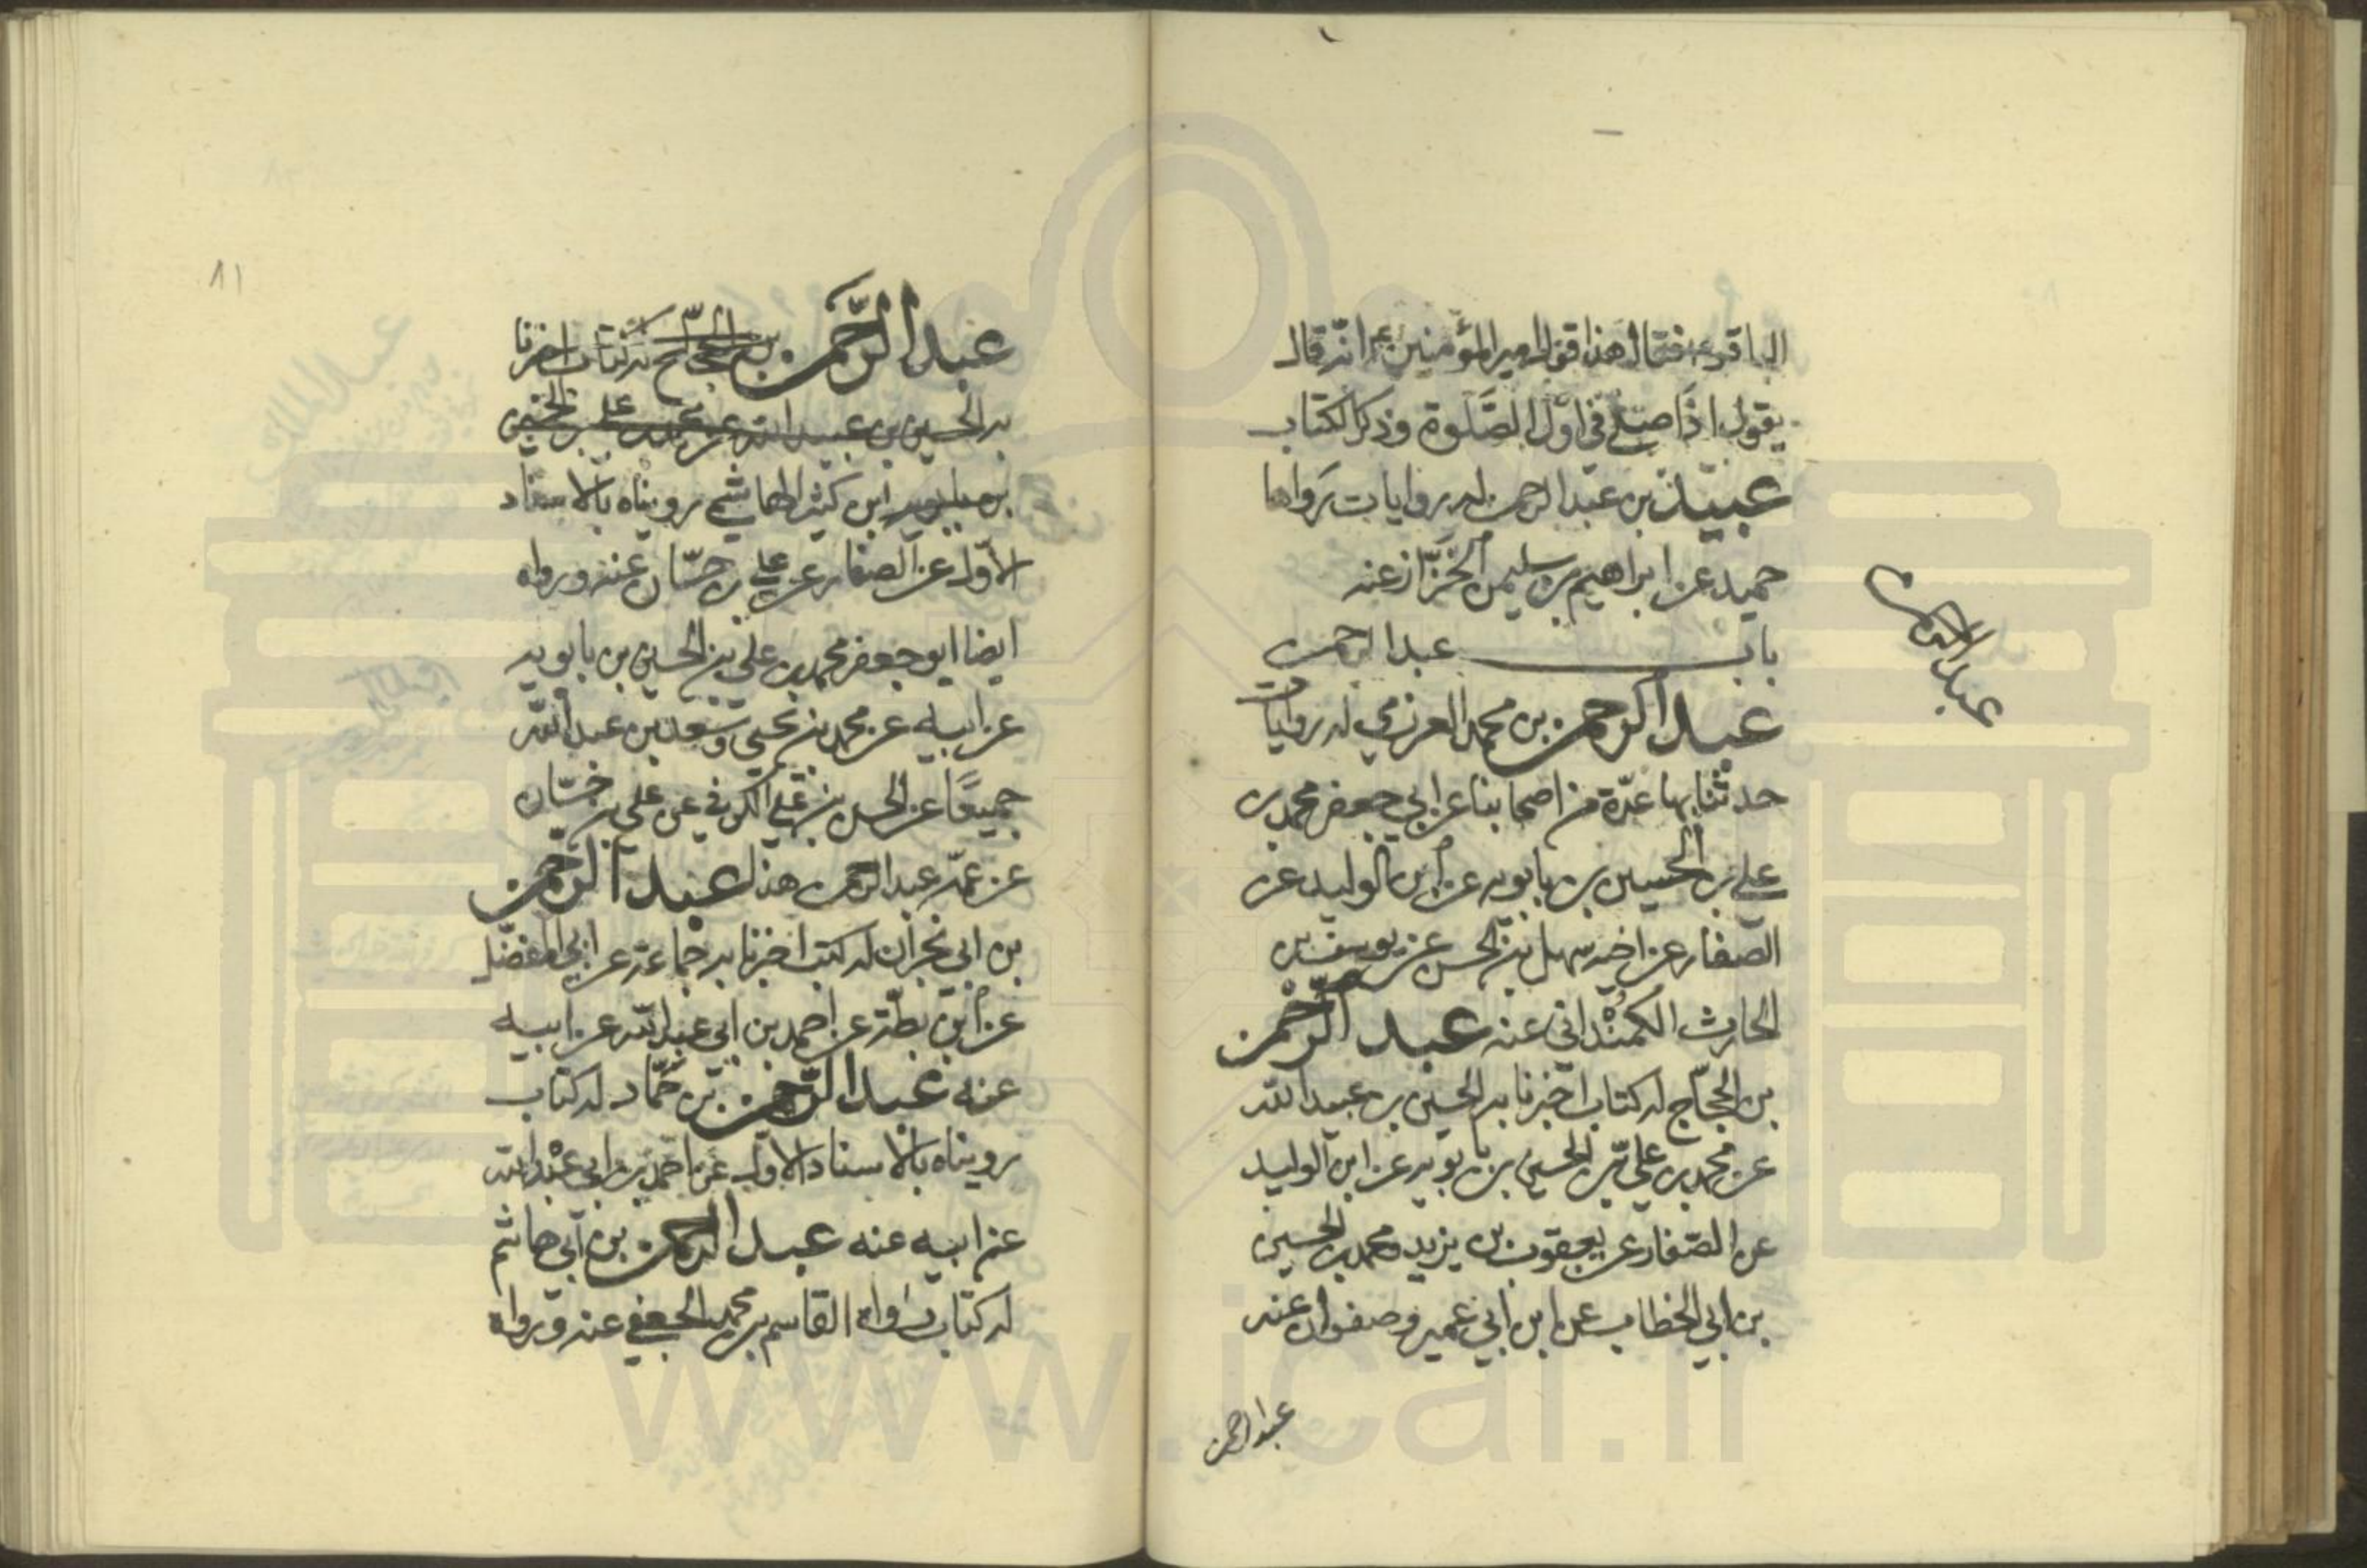 الباقر ع فقال هذا قول امير المؤمنين ع انه قال
يقول اذا صلى في اول الصلوة وذكر الكتاب
عبيد بن عبد الرحمن له روايات رواها
حميد عن ابراهيم بن سليمن الخزاز عنه
باب عبد الرحمن
عبد الرحمن بن محمد العرزمي له روايات
حدثنا بها عدة من اصحابنا عن ابي جعفر محمد بن
علي بن الحسين بن بابويه عن ابن الوليد عن
الصفار عن اخيه سهل بن الحسن عن يوسف بن
الحارث الكمنداني عنه عبد الرحمن
بن الحجاج له كتاب اخبرنا به الحسين بن عبيد الله
عن محمد بن علي بن الحسين بن بابويه عن ابن الوليد
عن الصفار عن يعقوب بن يزيد ومحمد بن الحسين
بن ابي الخطاب عن ابن ابي عمير وصفوان عنه
عبد الرحمن
عبد الرحمن
١١
عبد الرحمن بن الحجاج له كتاب اخبرنا
به الحسين بن عبيد الله عن محمد بن علي بن الحسين
بن بابويه ابن كثير الهاشمي رويناه بالاسناد
الاول عن الصفار عن علي بن حسان عنه ورواه
ايضا ابو جعفر محمد بن علي بن الحسين بن بابويه
عن ابيه عن محمد بن يحيى وسعد بن عبد الله
جميعا عن الحسن بن علي الكوفي عن علي بن حسان
عن عمه عبد الرحمن هذا عبد الرحمن
بن ابي نجران له كتب اخبرنا بها جماعة عن ابي المفضل
عن ابن بطة عن احمد بن ابي عبد الله عن ابيه
عنه عبد الرحمن بن حماد له كتاب
رويناه بالاسناد الاول عن احمد بن ابي عبد الله
عن ابيه عنه عبد الرحمن بن ابي هاشم
له كتاب رواه القاسم بن محمد الجعفي عنه ورواه
www.ical.ir